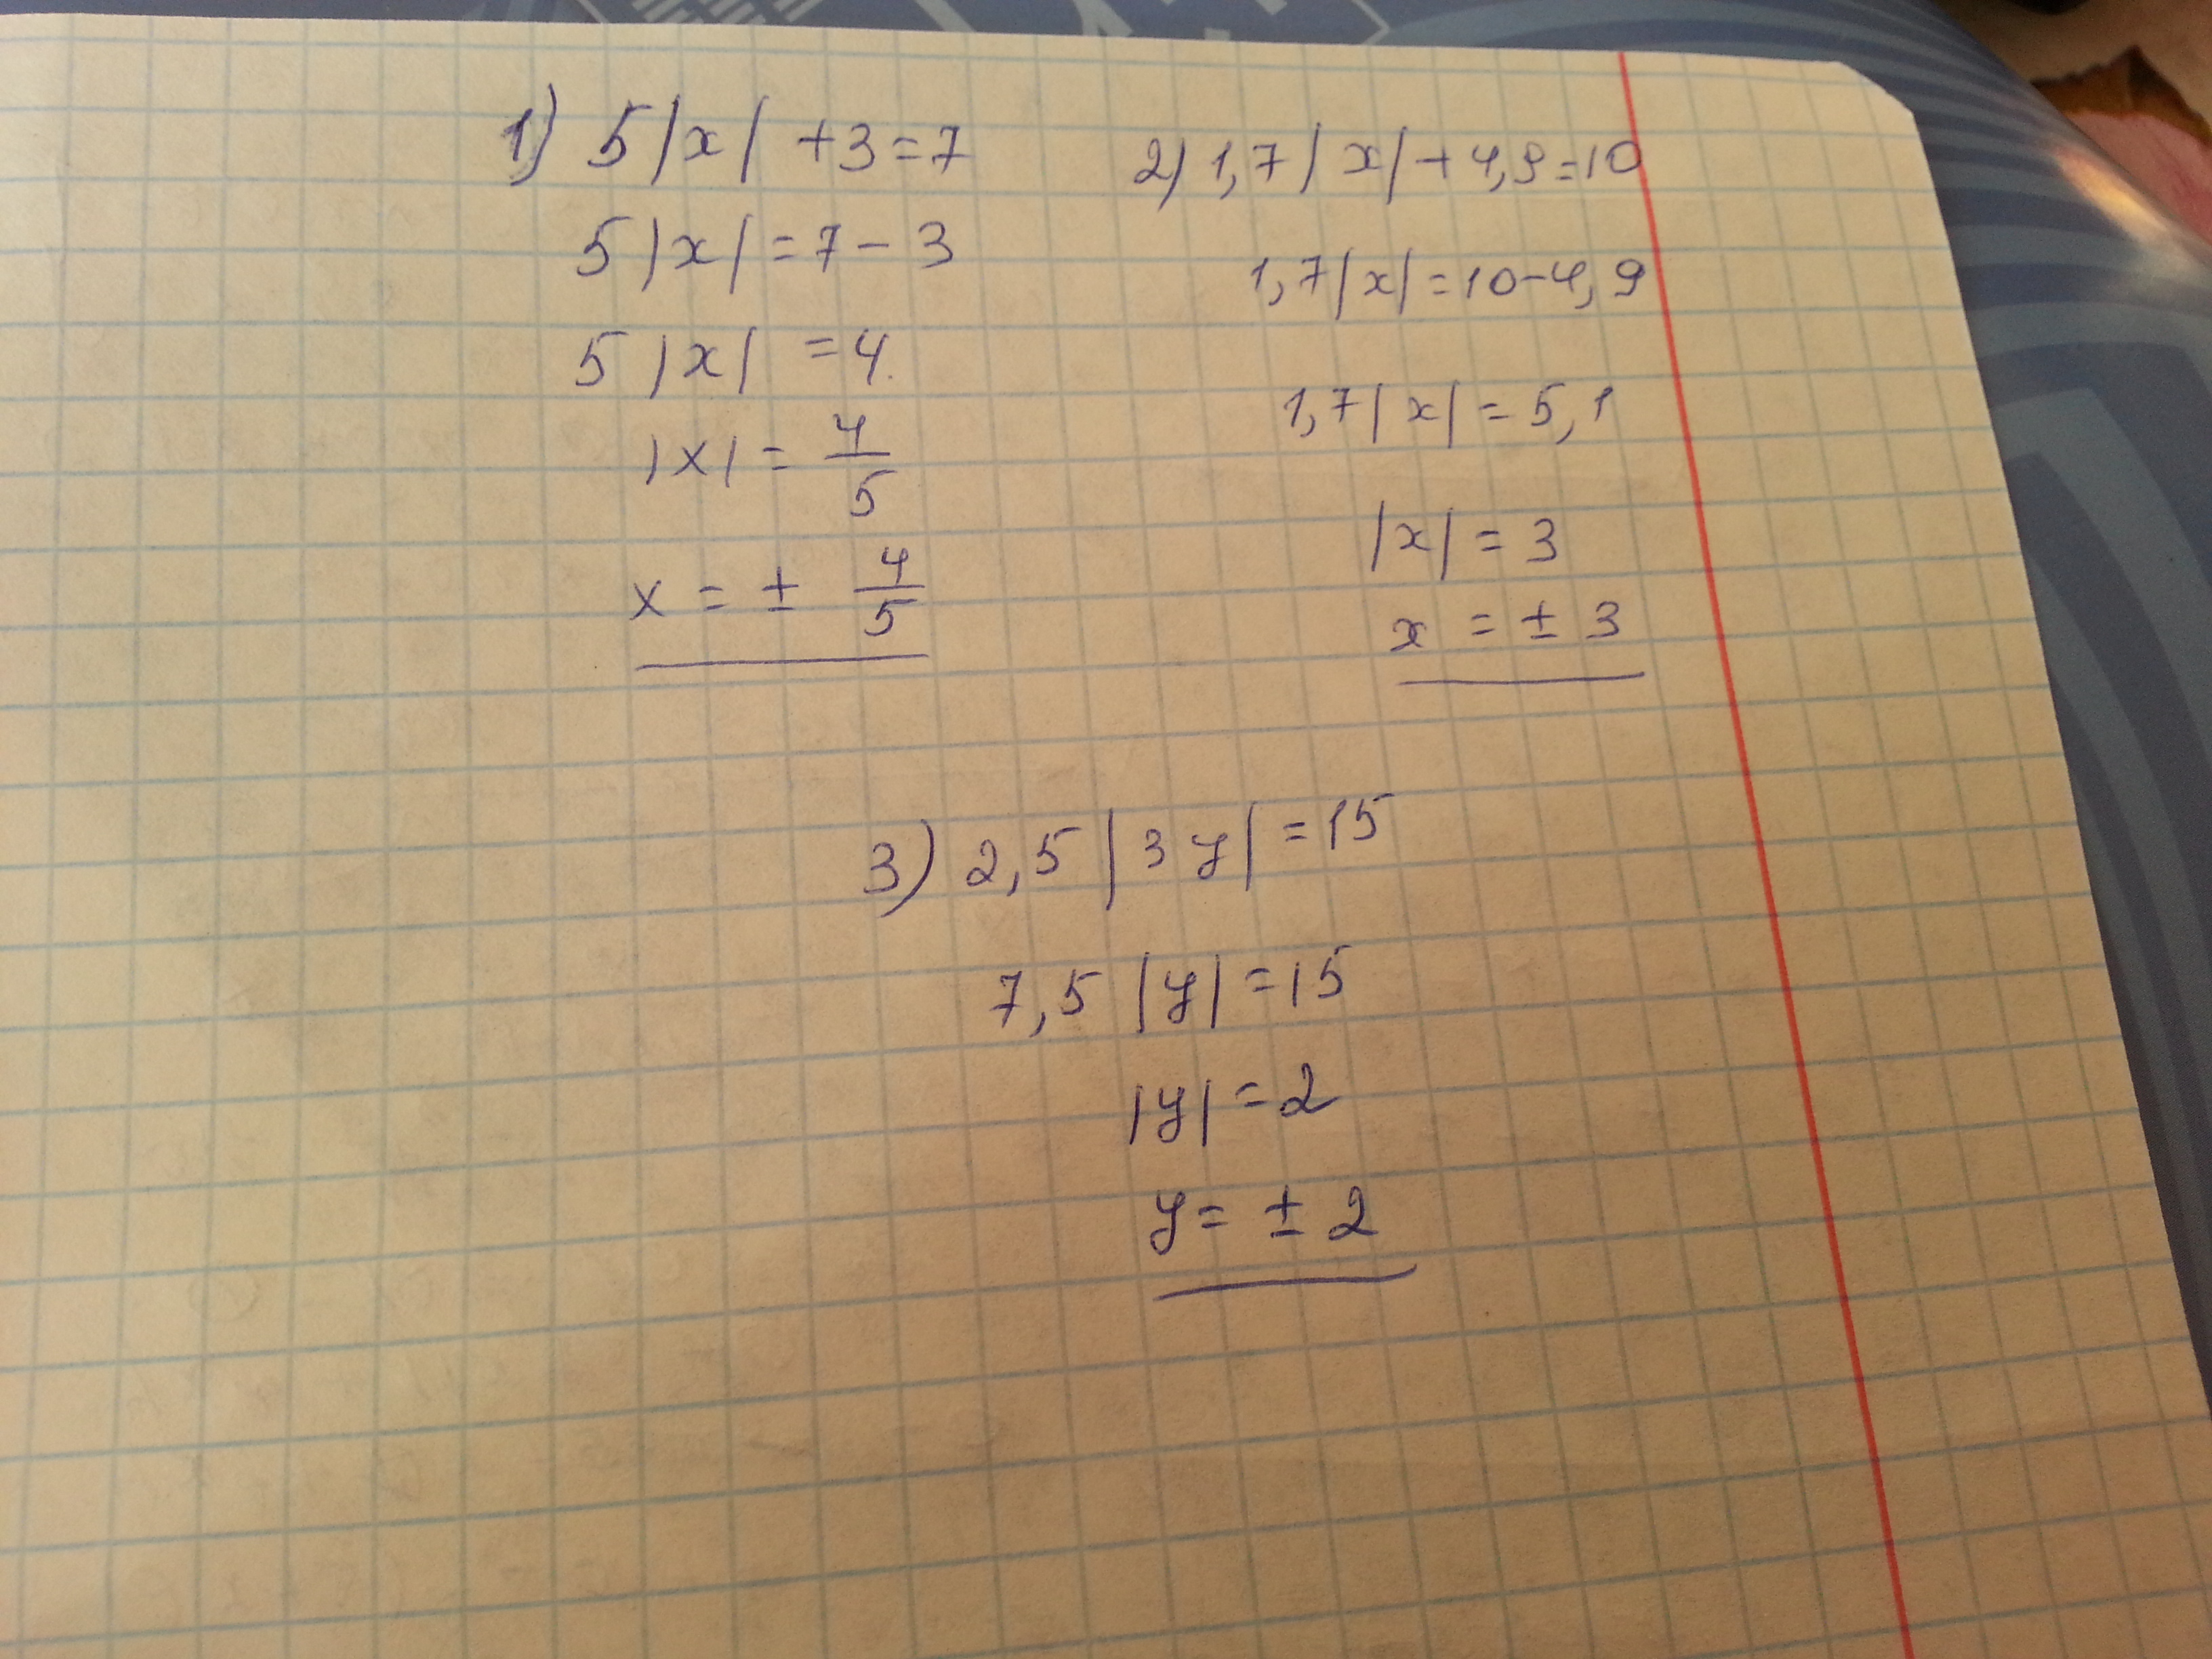 1) 5|x| +3=7
5|x|=7-3
5|x| =4
|x|= 4/5
x = ± 4/5
2) 1,7|x|+4,9=10
1,7|x|=10-4,9
1,7|x|=5,1
|x|=3
x = ± 3
3) 2,5|3y|=15
7,5|y|=15
|y|=2
y= ± 2